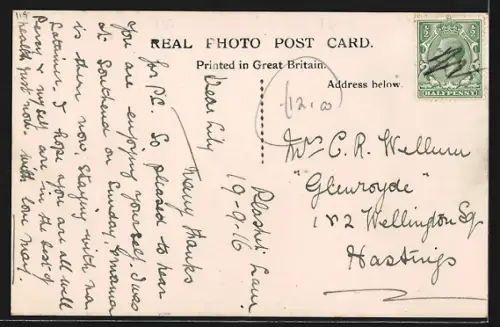 REAL PHOTO POST CARD.
Printed in Great Britain.
Address below.
HALFPENNY
(12.00)
Plashet Lane
19-9-16
Dear Lily
Many thanks
for P.C. So pleased to hear
you are enjoying yourself. I was
at Southend on Sunday,
is there now, staying with
I hope you are all well
Percy & myself are in the best of
health just now. With love May.
Mrs C. R. Welburn
"Glenroyde"
1 & 2 Wellington Sq
Hastings